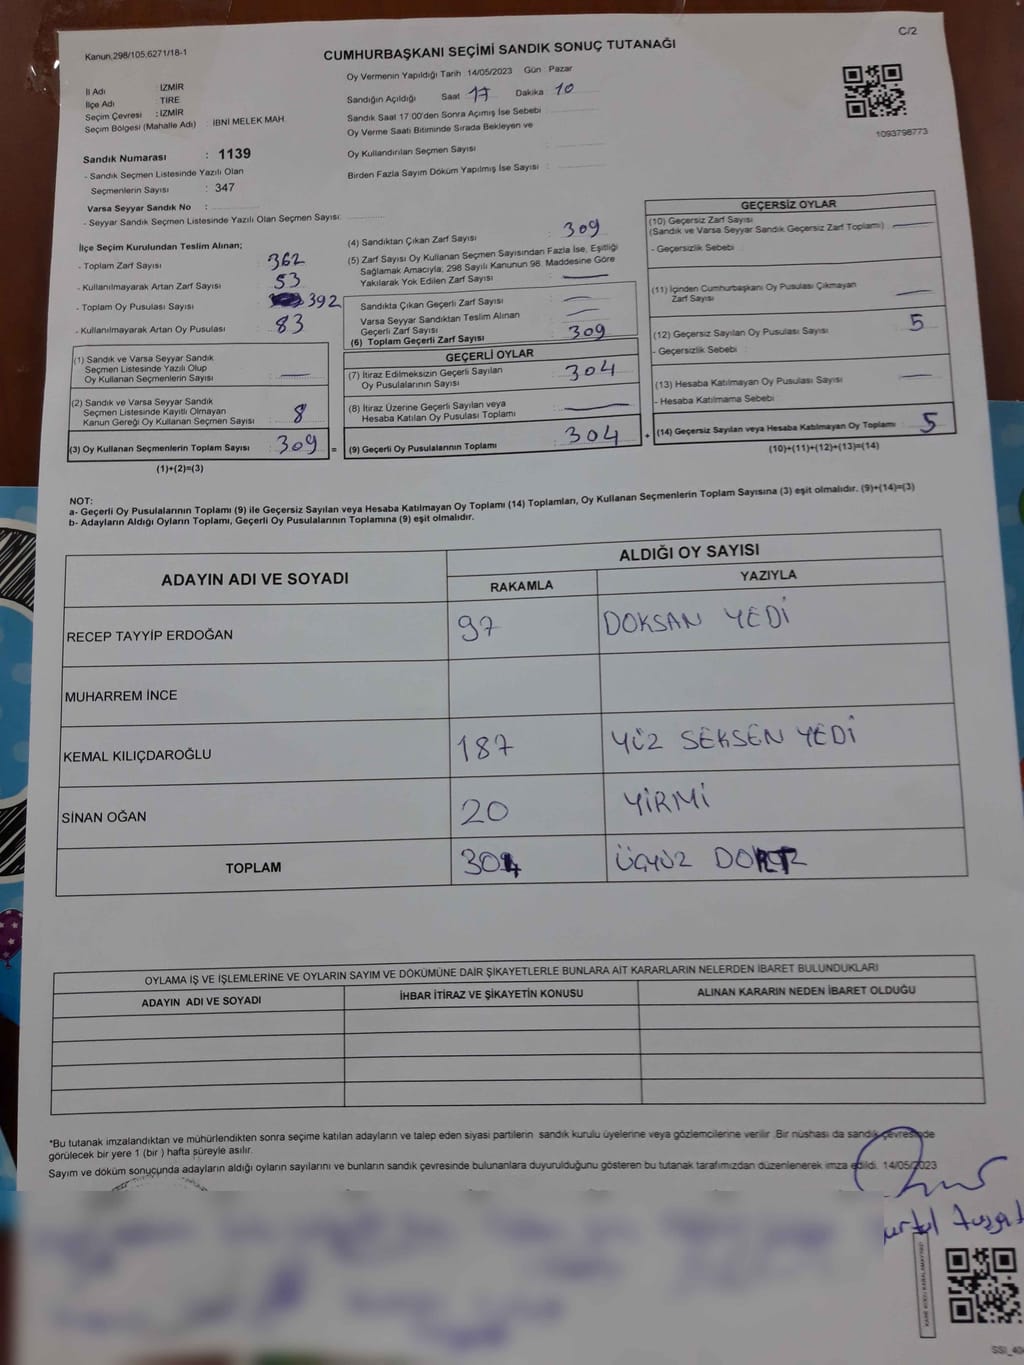 Kanun,298/105,6271/18-1
C/2
CUMHURBAŞKANI SEÇİMİ SANDIK SONUÇ TUTANAĞI
İl Adı : İZMİR
İlçe Adı : TİRE
Seçim Çevresi : İZMİR
Seçim Bölgesi (Mahalle Adı) : İBNİ MELEK MAH.
Sandık Numarası : 1139
- Sandık Seçmen Listesinde Yazılı Olan
Seçmenlerin Sayısı : 347
Varsa Seyyar Sandık No :
- Seyyar Sandık Seçmen Listesinde Yazılı Olan Seçmen Sayısı:
Oy Vermenin Yapıldığı Tarih : 14/05/2023 Gün : Pazar
Sandığın Açıldığı Saat 17 Dakika 10
Sandık Saat 17:00'den Sonra Açımış İse Sebebi
Oy Verme Saati Bitiminde Sırada Bekleyen ve
Oy Kullandırılan Seçmen Sayısı :
Birden Fazla Sayım Döküm Yapılmış İse Sayısı :
1093798773
İlçe Seçim Kurulundan Teslim Alınan;
- Toplam Zarf Sayısı : 362
- Kullanılmayarak Artan Zarf Sayısı : 53
- Toplam Oy Pusulası Sayısı : 392
- Kullanılmayarak Artan Oy Pusulası : 83
(1) Sandık ve Varsa Seyyar Sandık
Seçmen Listesinde Yazılı Olup
Oy Kullanan Seçmenlerin Sayısı : —
(2) Sandık ve Varsa Seyyar Sandık
Seçmen Listesinde Kayıtlı Olmayan
Kanun Gereği Oy Kullanan Seçmen Sayısı : 8
(3) Oy Kullanan Seçmenlerin Toplam Sayısı : 309
(1)+(2)=(3)
(4) Sandıktan Çıkan Zarf Sayısı : 309
(5) Zarf Sayısı Oy Kullanan Seçmen Sayısından Fazla İse, Eşitliği
Sağlamak Amacıyla; 298 Sayılı Kanunun 98. Maddesine Göre
Yakılarak Yok Edilen Zarf Sayısı : —
Sandıkta Çıkan Geçerli Zarf Sayısı : —
Varsa Seyyar Sandıktan Teslim Alınan
Geçerli Zarf Sayısı : —
(6) Toplam Geçerli Zarf Sayısı : 309
GEÇERLİ OYLAR
(7) İtiraz Edilmeksizin Geçerli Sayılan
Oy Pusulalarının Sayısı : 304
(8) İtiraz Üzerine Geçerli Sayılan veya
Hesaba Katılan Oy Pusulası Toplamı : —
= (9) Geçerli Oy Pusulalarının Toplamı : 304 +
GEÇERSİZ OYLAR
(10) Geçersiz Zarf Sayısı
(Sandık ve Varsa Seyyar Sandık Geçersiz Zarf Toplamı) : —
- Geçersizlik Sebebi :
(11) İçinden Cumhurbaşkanı Oy Pusulası Çıkmayan
Zarf Sayısı : —
(12) Geçersiz Sayılan Oy Pusulası Sayısı : 5
- Geçersizlik Sebebi :
(13) Hesaba Katılmayan Oy Pusulası Sayısı : —
- Hesaba Katılmama Sebebi
(14) Geçersiz Sayılan veya Hesaba Katılmayan Oy Toplamı : 5
(10)+(11)+(12)+(13)=(14)
NOT:
a- Geçerli Oy Pusulalarının Toplamı (9) ile Geçersiz Sayılan veya Hesaba Katılmayan Oy Toplamı (14) Toplamları, Oy Kullanan Seçmenlerin Toplam Sayısına (3) eşit olmalıdır. (9)+(14)=(3)
b- Adayların Aldığı Oyların Toplamı, Geçerli Oy Pusulalarının Toplamına (9) eşit olmalıdır.
ADAYIN ADI VE SOYADI
ALDIĞI OY SAYISI
RAKAMLA YAZIYLA
RECEP TAYYİP ERDOĞAN 97 DOKSAN YEDİ
MUHARREM İNCE
KEMAL KILIÇDAROĞLU 187 YÜZ SEKSEN YEDİ
SİNAN OĞAN 20 YİRMİ
TOPLAM 304 ÜÇYÜZ DÖRT
OYLAMA İŞ VE İŞLEMLERİNE VE OYLARIN SAYIM VE DÖKÜMÜNE DAİR ŞİKAYETLERLE BUNLARA AİT KARARLARIN NELERDEN İBARET BULUNDUKLARI
ADAYIN ADI VE SOYADI İHBAR İTİRAZ VE ŞİKAYETİN KONUSU ALINAN KARARIN NEDEN İBARET OLDUĞU
*Bu tutanak imzalandıktan ve mühürlendikten sonra seçime katılan adayların ve talep eden siyasi partilerin sandık kurulu üyelerine veya gözlemcilerine verilir .Bir nüshası da sandık çevresinde
görülecek bir yere 1 (bir ) hafta süreyle asılır.
Sayım ve döküm sonucunda adayların aldığı oyların sayılarını ve bunların sandık çevresinde bulunanlara duyurulduğunu gösteren bu tutanak tarafımızdan düzenlenerek imza edildi. 14/05/2023